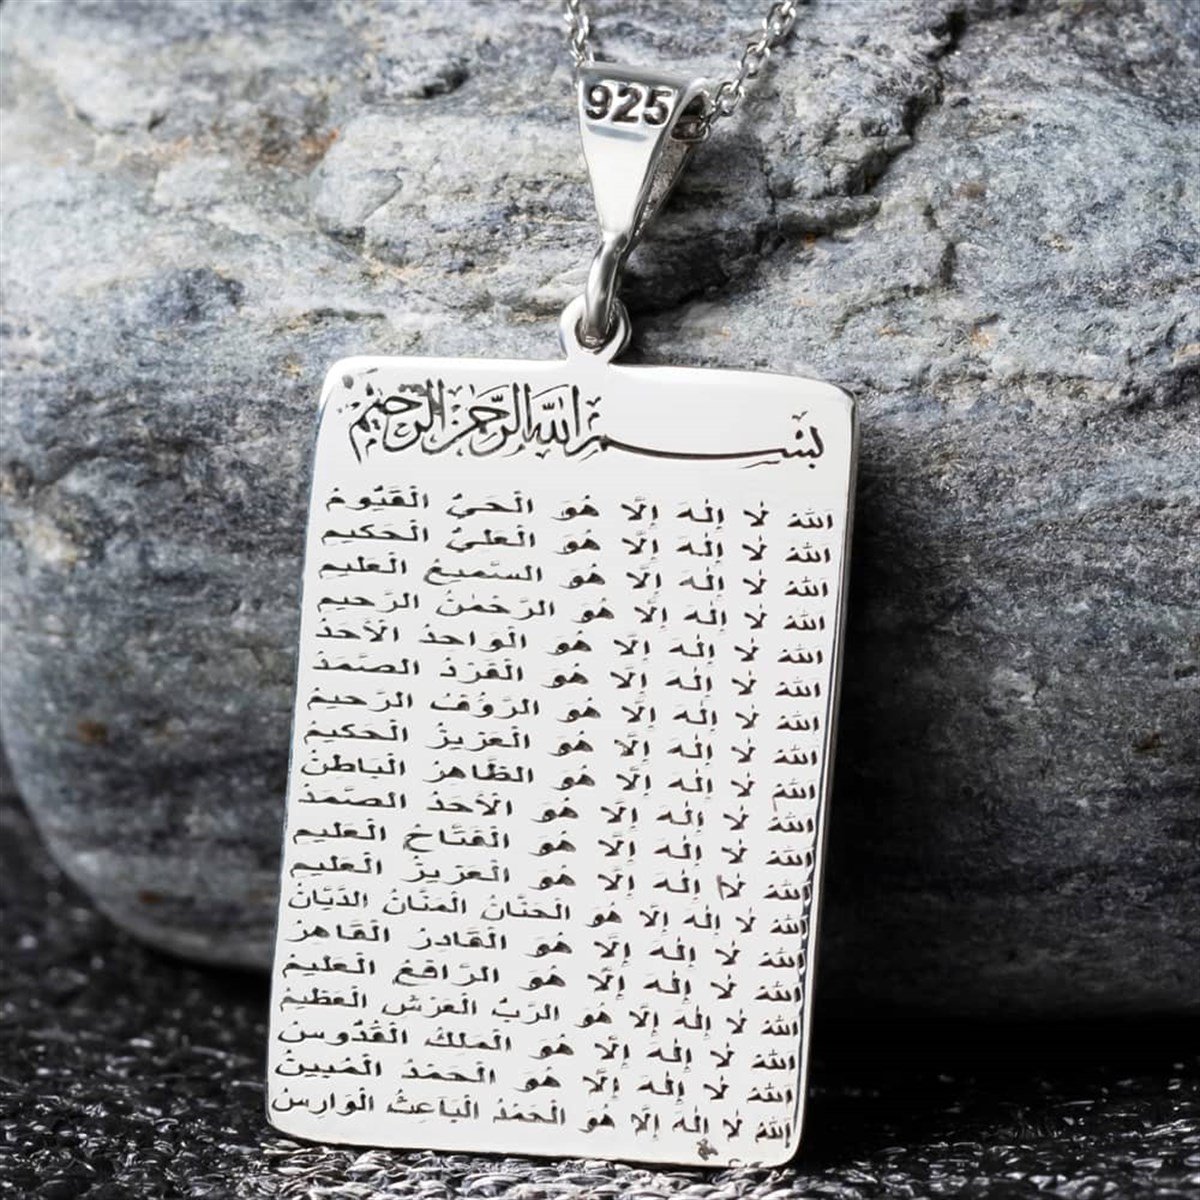 925
بسم الله الرحمن الرحيم
اَللهُ لَا إِلٰهَ إِلَّا هُوَ الْحَيُّ الْقَيُّومُ
اَللهُ لَا إِلٰهَ إِلَّا هُوَ الْعَلِيُّ الْحَكِيمُ
اَللهُ لَا إِلٰهَ إِلَّا هُوَ السَّمِيعُ الْعَلِيمُ
اَللهُ لَا إِلٰهَ إِلَّا هُوَ الرَّحْمٰنُ الرَّحِيمُ
اَللهُ لَا إِلٰهَ إِلَّا هُوَ الْوَاحِدُ الْأَحَدُ
اَللهُ لَا إِلٰهَ إِلَّا هُوَ الْفَرْدُ الصَّمَدُ
اَللهُ لَا إِلٰهَ إِلَّا هُوَ الرَّؤُفُ الرَّحِيمُ
اَللهُ لَا إِلٰهَ إِلَّا هُوَ الْعَزِيزُ الْحَكِيمُ
اَللهُ لَا إِلٰهَ إِلَّا هُوَ الظَّاهِرُ الْبَاطِنُ
اَللهُ لَا إِلٰهَ إِلَّا هُوَ الْأَحَدُ الصَّمَدُ
اَللهُ لَا إِلٰهَ إِلَّا هُوَ الْفَتَّاحُ الْعَلِيمُ
اَللهُ لَا إِلٰهَ إِلَّا هُوَ الْعَزِيزُ الْعَلِيمُ
اَللهُ لَا إِلٰهَ إِلَّا هُوَ الْحَنَّانُ الْمَنَّانُ الدَّيَّانُ
اَللهُ لَا إِلٰهَ إِلَّا هُوَ الْقَادِرُ الْقَاهِرُ
اَللهُ لَا إِلٰهَ إِلَّا هُوَ الرَّافِعُ الْعَلِيمُ
اَللهُ لَا إِلٰهَ إِلَّا هُوَ الرَّبُّ الْعَرْشِ الْعَظِيمُ
اَللهُ لَا إِلٰهَ إِلَّا هُوَ الْمَلِكُ الْقُدُّوسُ
اَللهُ لَا إِلٰهَ إِلَّا هُوَ الْحَمْدُ الْمُبِيتُ
اَللهُ لَا إِلٰهَ إِلَّا هُوَ الْحَمْدُ الْبَاعِثُ الْوَارِسُ